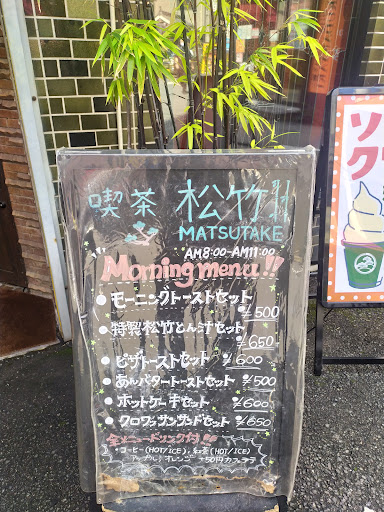 喫茶 松竹
MATSUTAKE
AM8:00-AM11:00
Morning menu!!
モーニングトーストセット
¥500
特製松竹とん汁セット
¥650
ピザトーストセット ¥600
あんバタートーストセット ¥500
ホットケーキセット ¥600
クロワッサンサンドセット ¥650
全メニュードリンク付
・コーヒー(HOT/ICE)、紅茶(HOT/ICE)
アップル、オレンジ +50円カフェラテ
ソ
ク